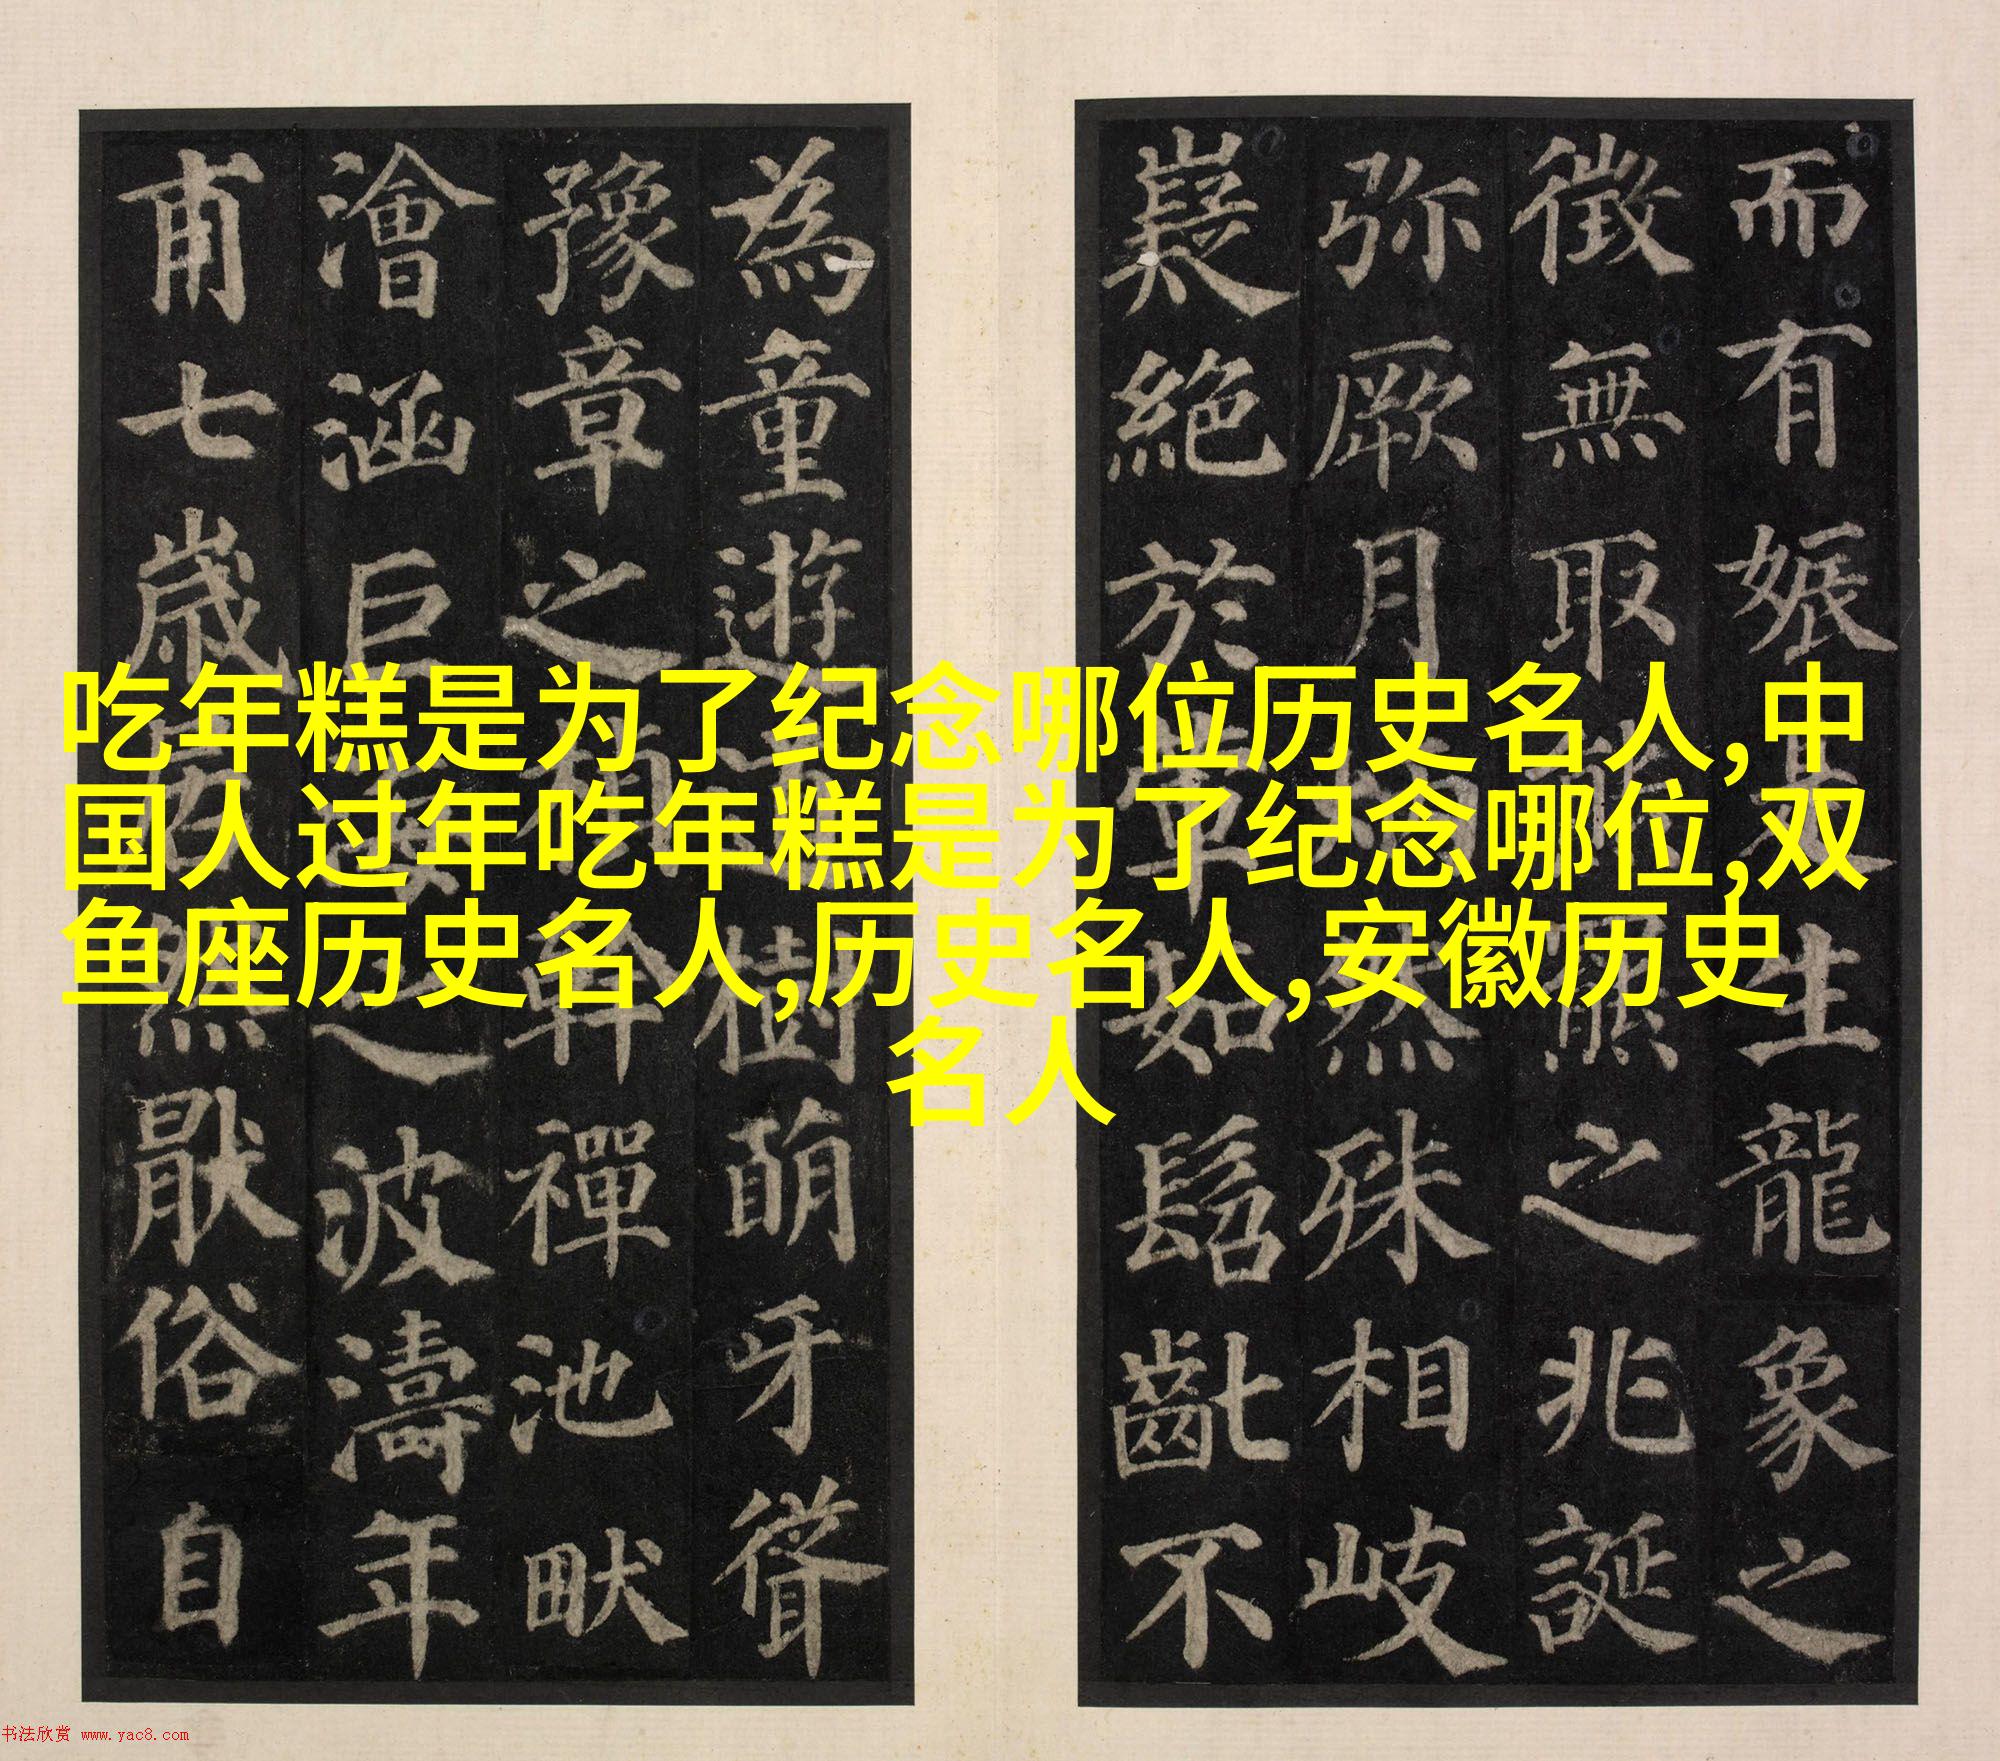 吃年糕是为了纪念哪位历史名人,中
国人过年吃年糕是为了纪念哪位,双
鱼座历史名人,历史名人,安徽历史
名人
而有娠生龍象之
徵無取熊之兆誕
弥厥月然殊相岐
嶷絶於如髫齔不
為童遊樹萌牙聳
豫章之幹禪池畎
澮涵巨之波濤年
甫七歲厭俗自
书法欣赏 www.yac8.com